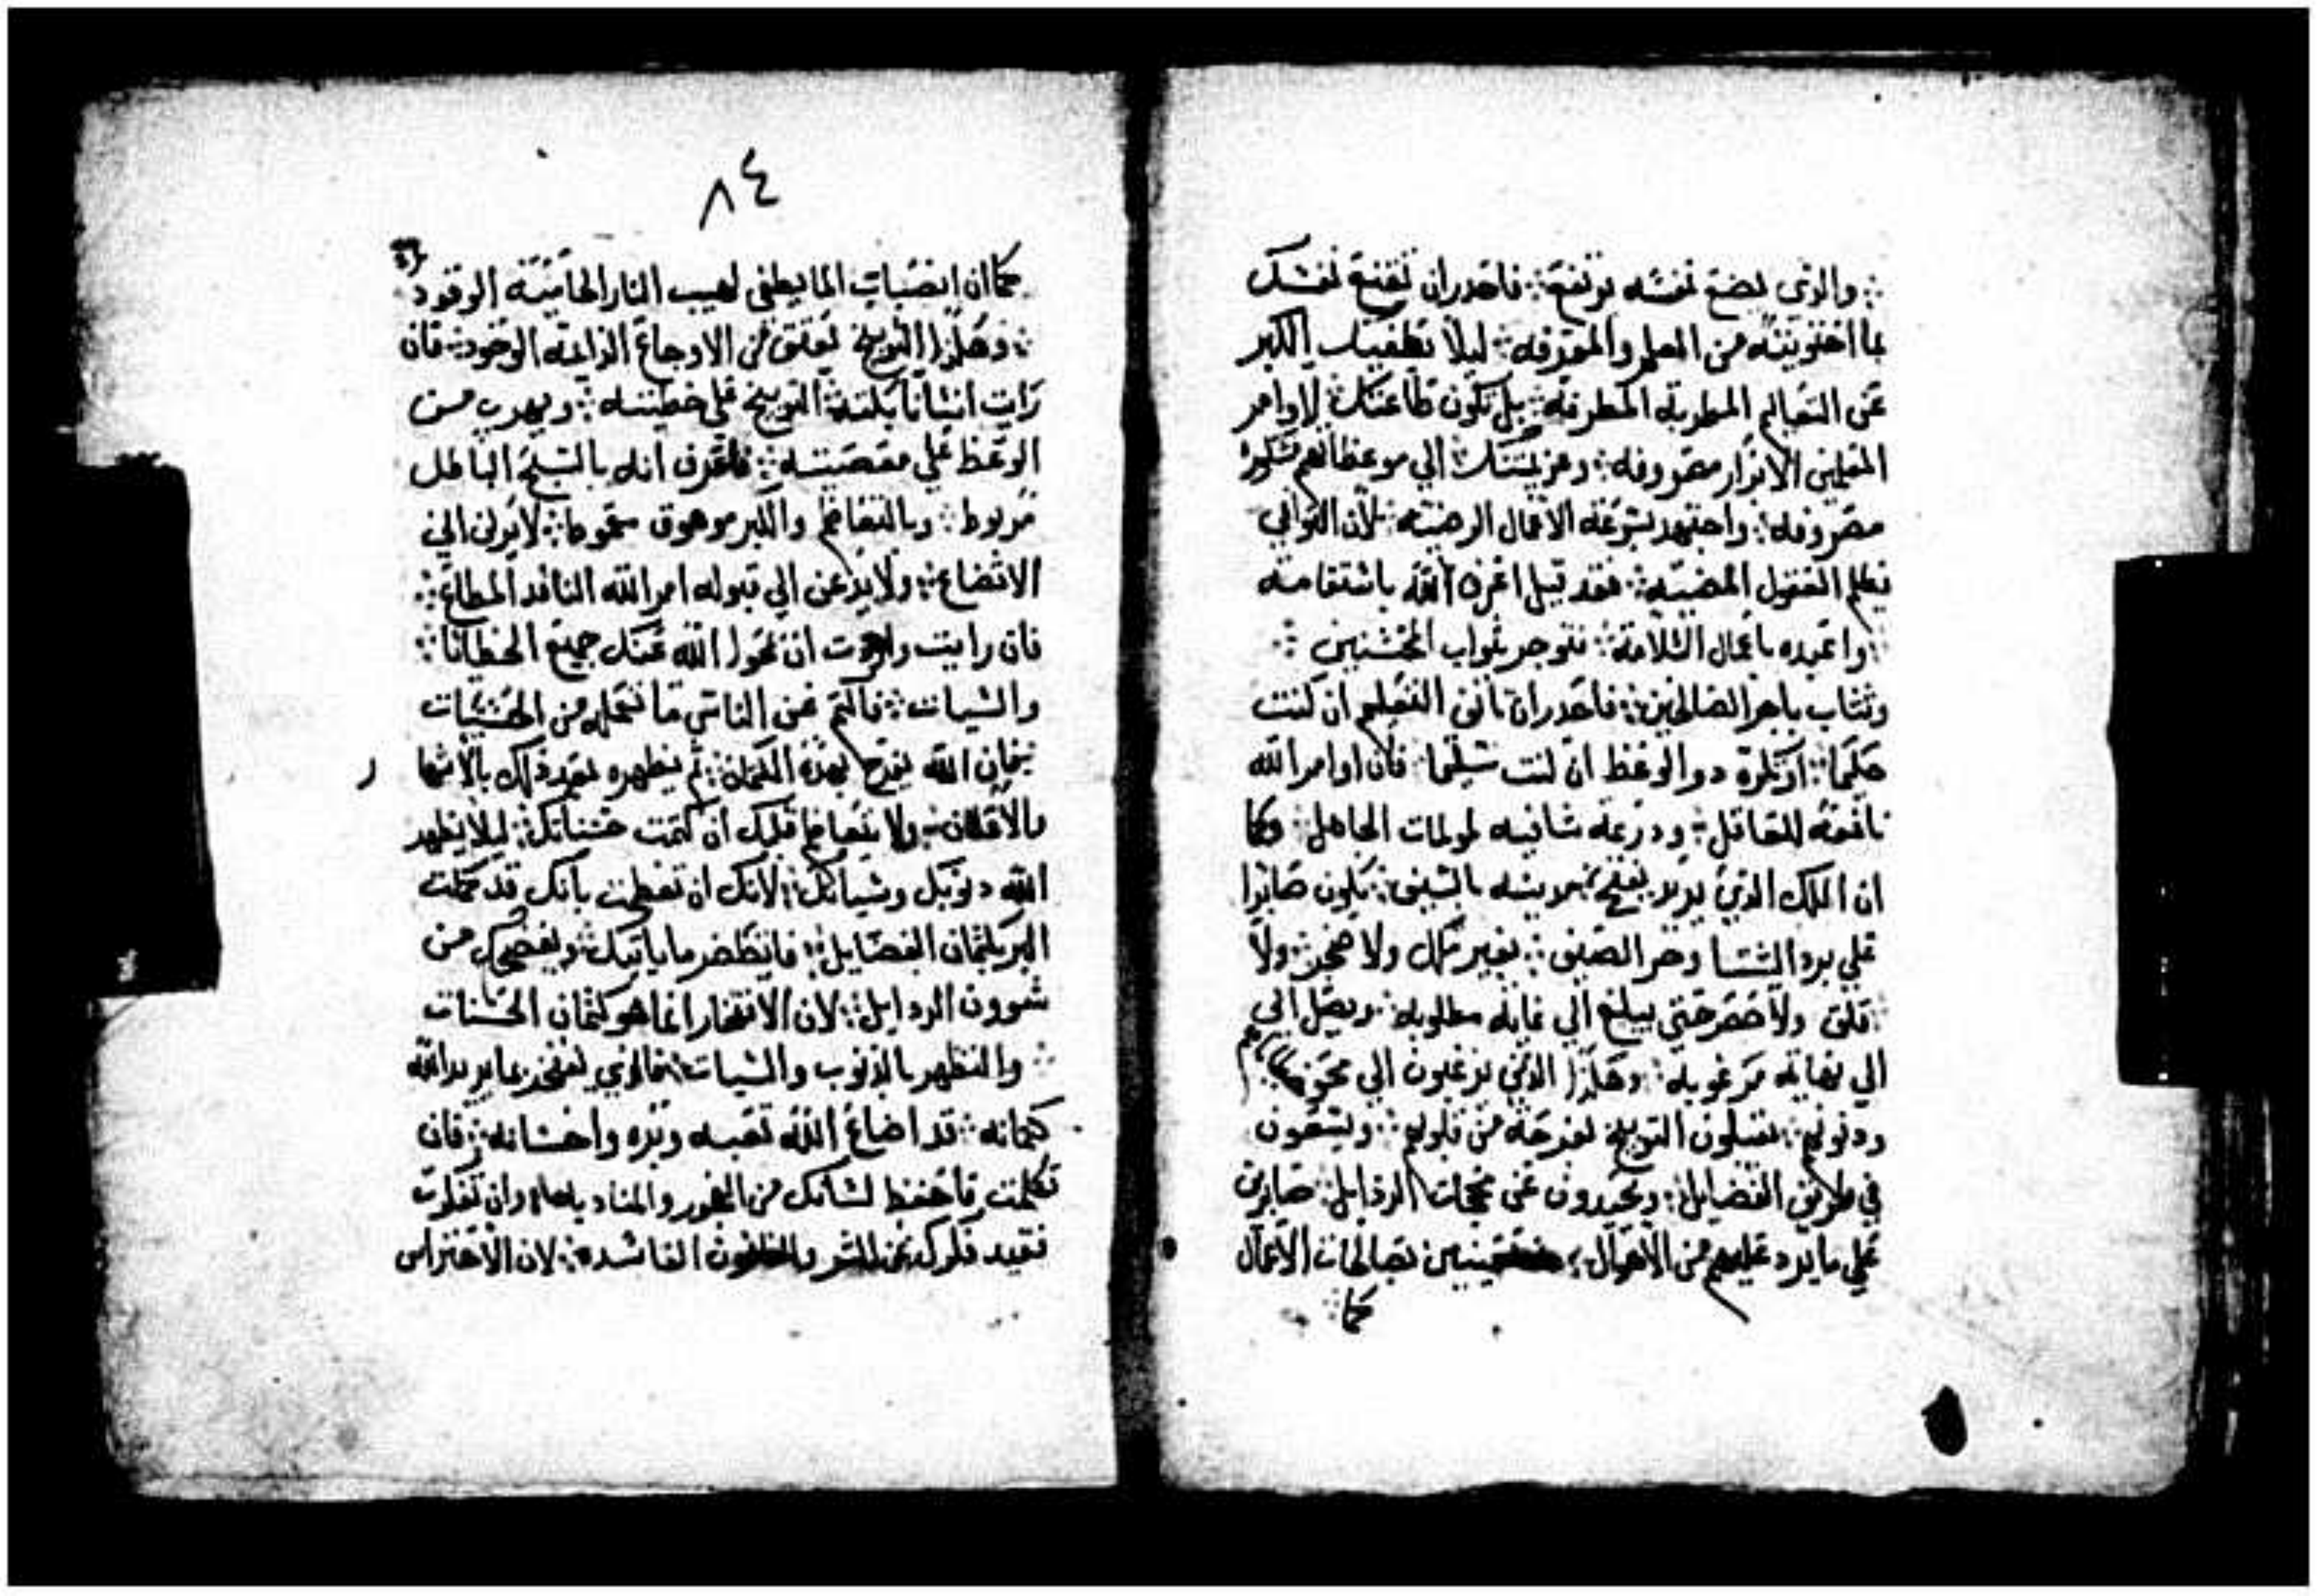 والذي يضع نفسه يرتفع ؞ فاحدر ان تقنع نفسك
بما احتويته من العلم والمعرفه ؞ ليلا يطغيك الكبر
عن التعاليم المطربة المطرفه ؞ بل تكون طاعتك لاوامر
المعلمين الابرار معروفه ؞ وعزيمتك الي موعظاتهم
مصروفه ؞ واجتهد بسرعة الاعمال الرضيه ؞ لان التواني
يظلم العقول المضيه ؞ فقد قيل اعرف الله باستقامة
؞ واعبده باعمال السلامة ؞ فتوجر بثواب المحسنين ؞
وتثاب باجر الصالحين ؞ فاحدر ان تانف التعليم ان كنت
حكيما ؞ او تكره دوا الوعظ ان كنت سليما ؞ فان اوامر الله
نافعة للعاقل ؞ ودرعة شافيه لمولمات الجاهل ؞ وكما
ان الملك الذي يريد يفتح مدينه بالسيف ؞ يكون صابرا
علي برد الشتا وحر الصيف ؞ بغير ملل ولا ضجر ؞ ولا
؞ قلق ولا حصر حتي يبلغ الي غاية مطلوبه ؞ ويصل الي
الي نهاية مرغوبه ؞ وهكذا الذين يرغبون الي محو
ودنوبهم ؞ يقبلون التوبيخ بفرحة من قلوبهم ؞ ويسعون
في طريق الفضايل ؞ ويحيدون عن محجات الردايل ؞ صابرين
علي ما يرد عليهم من الاهوال ؞ بصالحات الاعمال
كما ؞
٨٤
كما ان انصباب الما يطفي لهيب النار الحامية الوقود
؞ وهكذا التوبيخ يعتق من الاوجاع الدايمة الوجود ؞ فان
رايت انسانا يكته التوبيخ علي خطيته ؞ ويهرب من
الوعظ علي معصيته ؞ فاعرف انه بالسبح الباطل
مربوط ؞ وبالتعاظم والكبر موهوق ؞ لا يركن الي
الاتضاع ؞ ولا يدعن الي قبوله امر الله النافد المطاع ؞
فان رايت واردت ان يمحوا الله عنك جميع الخطايا ؞
والسيات ؞ فاكتم عن الناس ما تعمله من الحسنات
؞ فان الله يفرح بهذه الكتمان ؞ ثم يظهره بعد ذلك بالاشها
ر
بالاعلان ؞ ولا يتعاظم قلبك ان كتمت حسناتك ؞ ليلا يظهر
الله دنوبك وسياتك ؞ لانك ان تعظمت بانك قد كملت
البر بكتمان الفضايل ؞ فانتظر ما ياتيك ؞ ويفضحك من
شوون الردايل ؞ لان الافتخار انما هو كتمان الحسنات
؞ والتظهر بالذنوب والسيات ؞ فالذي يفتخر بما يريد الله
كتمانه ؞ قد اضاع الله تعبه وبره واحسانه ؞ فان
تكلمت فاحفظ لسانك من الفجور والمناد وان تفكرت
فقيد فكرك عن الشر والظنون الفاسده ؞ لان الاحتراس